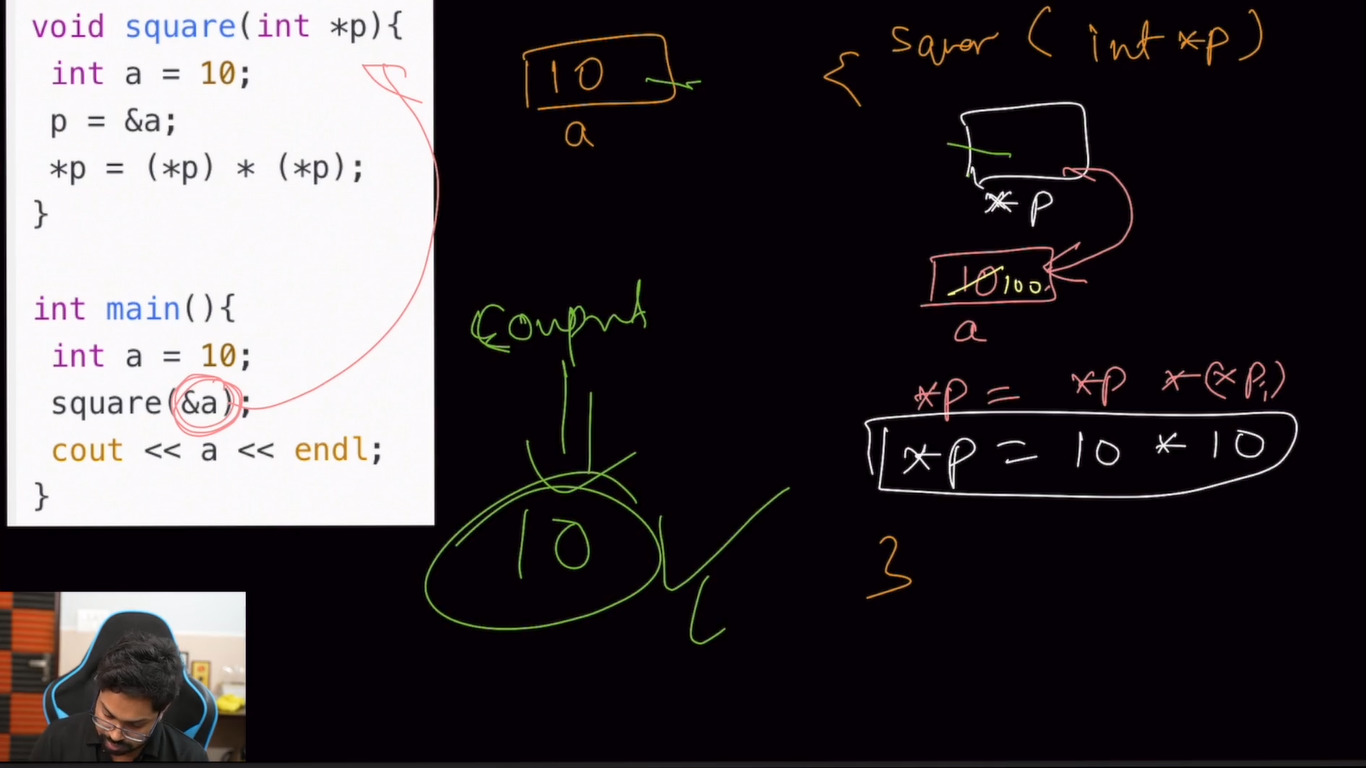 void square(int *p){
int a = 10;
p = &a;
*p = (*p) * (*p);
}
int main(){
int a = 10;
square(&a);
cout << a << endl;
}
10
a
{
(int *p)
* p
10 100
a
*p = *p *(*p)
*p = 10 * 10
10
}